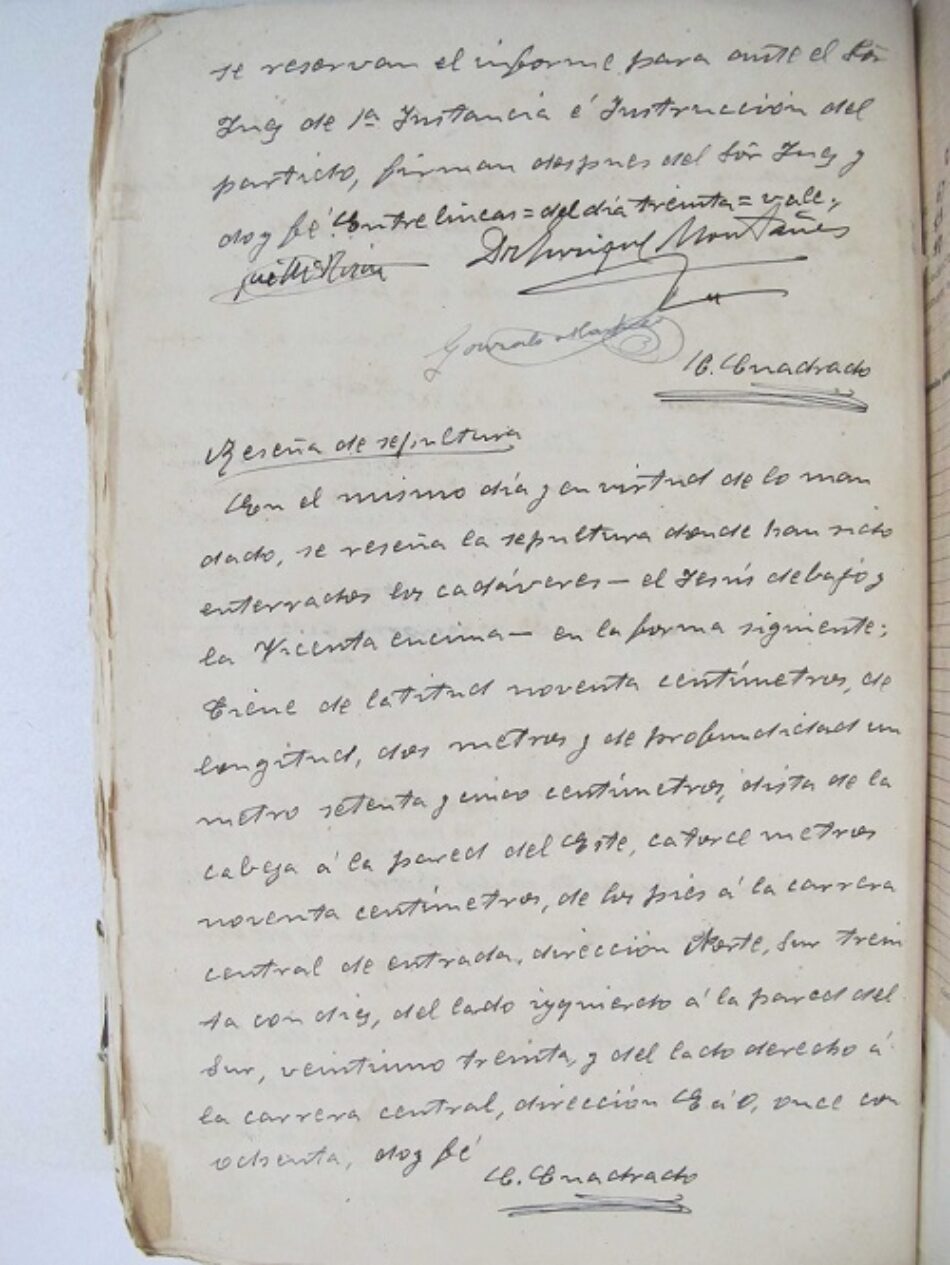 se reservan el informe para ante el Sör
Juez de 1ª Instancia é Instrucción del
partido, firman despues del Sör Juez y
doy fé. Entre lineas = del día treinta = vale,
Dr Enrique Montañés
Gonzalo
C. Cuadrado
Reseña de sepultura
En el mismo día y en virtud de lo man
dado, se reseña la sepultura donde han sido
enterrados los cadáveres — el Jesús debajo y
la Vicenta encima — en la forma siguiente:
Tiene de latitud noventa centímetros, de
longitud, dos metros y de profundidad un
metro setenta y cinco centímetros, dista de la
cabeza á la pared del Este, catorce metros
noventa centímetros, de los piés á la carrera
central de entrada, dirección Norte, Sur trein
ta con diez, del lado izquierdo á la pared del
Sur, veintiuno treinta, y del lado derecho á
la carrera central, dirección E á O, once con
ochenta, doy fé
C. Cuadrado